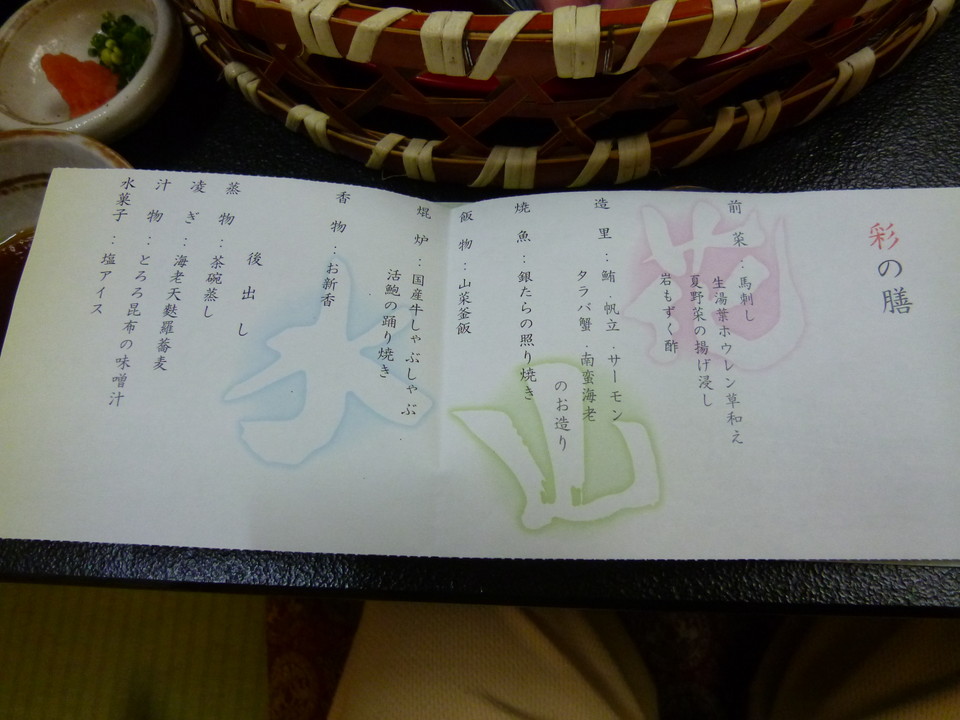 彩の膳
前菜：馬刺し
生湯葉ホウレン草和え
夏野菜の揚げ浸し
岩もずく酢
造里：鮪．帆立．サーモン
タラバ蟹．南蛮海老
のお造り
焼魚：銀たらの照り焼き
飯物：山菜釜飯
焜炉：国産牛しゃぶしゃぶ
活鮑の踊り焼き
香物：お新香
後出し
蒸物：茶碗蒸し
凌ぎ：海老天麩羅蕎麦
汁物：とろろ昆布の味噌汁
水菓子：塩アイス
山
水